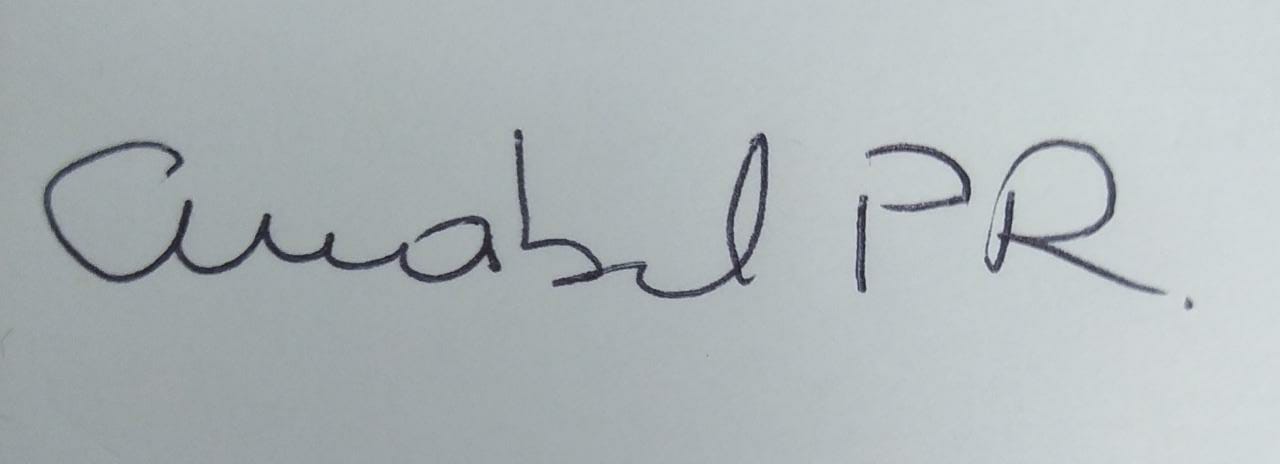 Anabel PR.